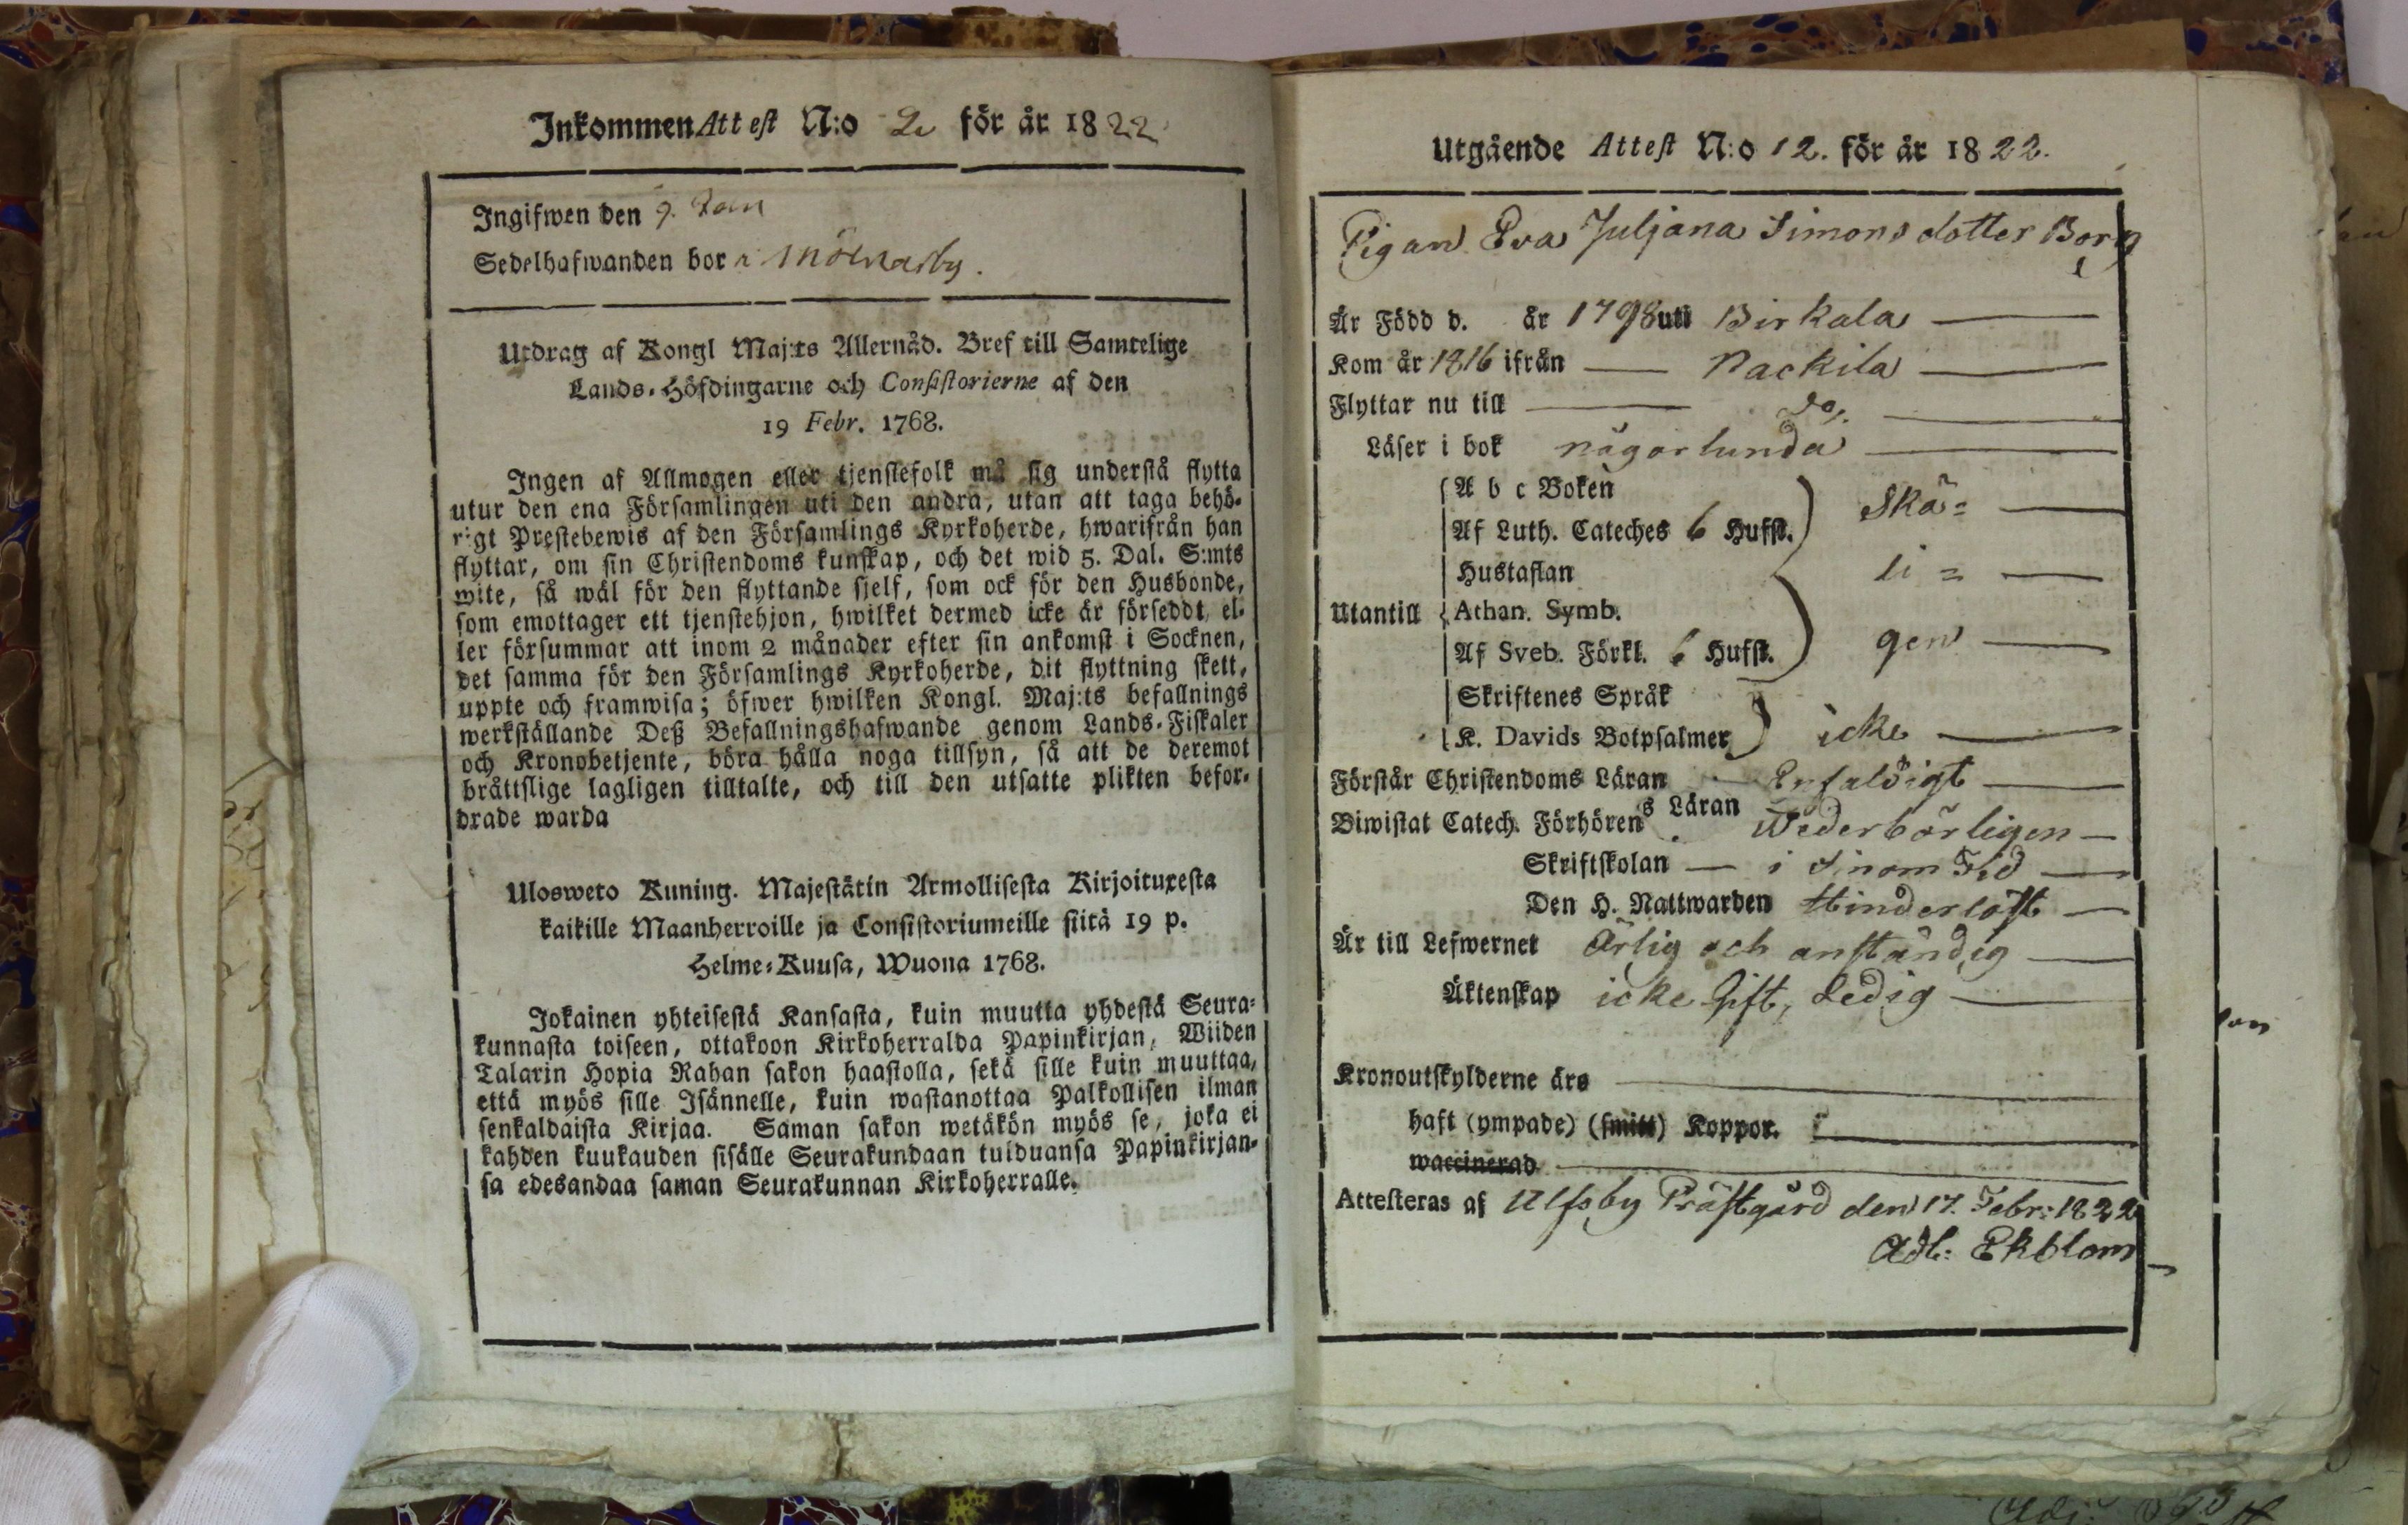 Inkommen Attest N:o 2 för år 1822
Ingifwen den 9. Jan
Sedelhafwanden bor i
Utdrag af Kongl Maj:ts Allernåd. Bref till Samtelige
Lands-Höfdingarne och Consistorierne af den
19 Febr. 1768.
Ingen af Allmogen eller tjenstefolk må sig understå flytta
utur den ena Församlingen uti den andra, utan att taga behö-
rigt Prestebewis af den Församlings Kyrkoherde, hwarifrån han
flyttar, om sin Christendoms kunskap, och det wid 5. Dal. S:mts
wite, så wäl för den flyttande sjelf, som ock för den Husbonde,
som emottager ett tjenstehjon, hwilket dermed icke är förseddt, el-
ler försummar att inom 2 månader efter sin ankomst i Socknen,
det samma för den Församlings Kyrkoherde, dit flyttning skett,
uppte och framwisa; öfwer hwilken Kongl. Maj:ts befallnings
werkställande Deß Befallningshafwande genom Lands-Fiskaler
och Kronobetjente, böra hålla noga tillsyn, så att de deremot
bråttslige lagligen tilltalte, och till den utsatte plikten befor-
drade warda
Ulosweto Kuning. Majestätin Armollisesta Kirjoituxesta
kaikille Maanherroille ja Consistoriumeille siitä 19 p.
Helme-Kuusa, Wuona 1768.
Jokainen yhteisestä Kansasta, kuin muutta yhdestä Seura-
kunnasta toiseen, ottakoon Kirkoherralda Papinkirjan, Wiiden
Talarin Hopia Rahan sakon haastolla, sekä sille kuin muuttaa,
että myös sille Isännelle, kuin wastanottaa Palkollisen ilman
senkaldaista Kirjaa. Saman sakon wetäkön myös se, joka ei
kahden kuukauden sisälle Seurakundaan tulduansa Papinkirjan-
sa edesandaa saman Seurakunnan Kirkoherralle.
Utgående Attest N:o 12. för år 1822.
Pigan Eva Juljana Simons dotter Borg
Är Född d. år 1798 uti Birkala
Kom år 1816 ifrån Nackila
Flyttar nu till do.
Läser i bok någorlunda
Utantill
A b c Boken
Af Luth. Cateches 6 Hufst. Skä=
Hustaflan li=
Athan. Symb.
Af Sveb. Förkl. 6 Hufst. gen
Skriftenes Språk
K. Davids Botpsalmer icke
Förstår Christendoms Läran Enfaldigt
Biwistat Catech. Förhören s Läran Wederbörligen
Skriftskolan i Sinom Tid
Den H. Nattwarden Hinderlöst
Är till Lefwernet Ärlig och anständig
Äktenskap icke Gift, Ledig
Kronoutskylderne äro
haft (ympade) (smitt) Koppor.
waccinerad
Attesteras af Ulfsby Prästgård den 17. Febr: 1822
Adl: Ekblom